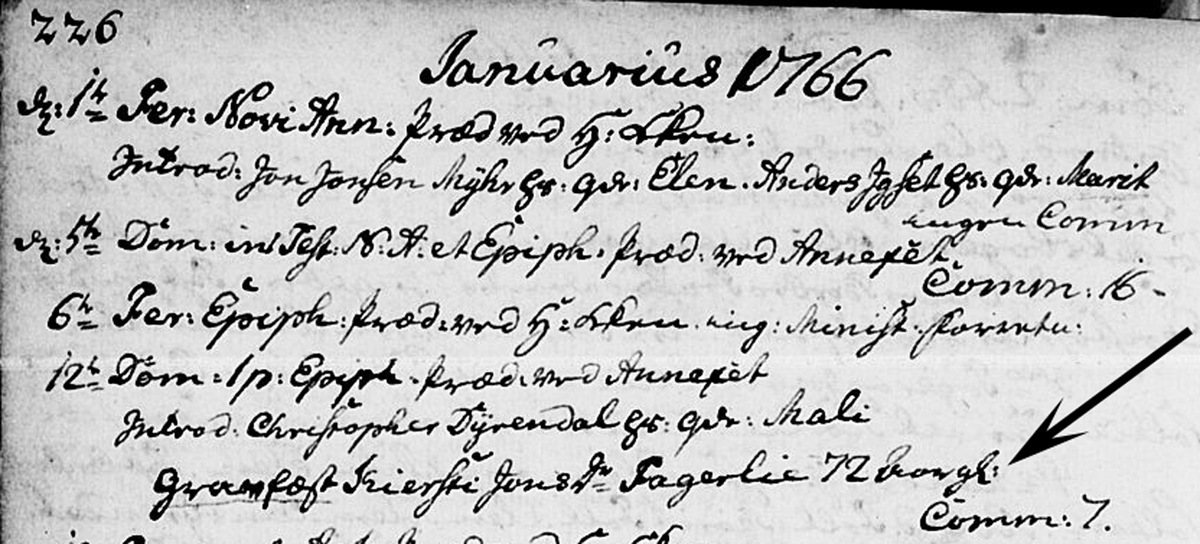 226
Januarius 1766
d: 1te Fer: Novi Ann: Præd ved H: Kken:
Introd: Jon Jonsen Myhr hs: qvr: Elen. Anders Jgset hs: qvr: Marit
ingen Comm
d: 5te Dom: int Fest: N: A: et Epiph. Præd. ved Annexet
Comm: 16 -
6te Fer: Epiph: Præd: ved H: Kken. ing: Minist. forretn:
12te Dom: 1 p: Epiph. Præd. ved Annexet
Introd: Christopher Dyrendal hs: qvr: Mali
Gravfæst Kiersti Jonsdr Fagerlie 72 aargl:
Comm: 7.